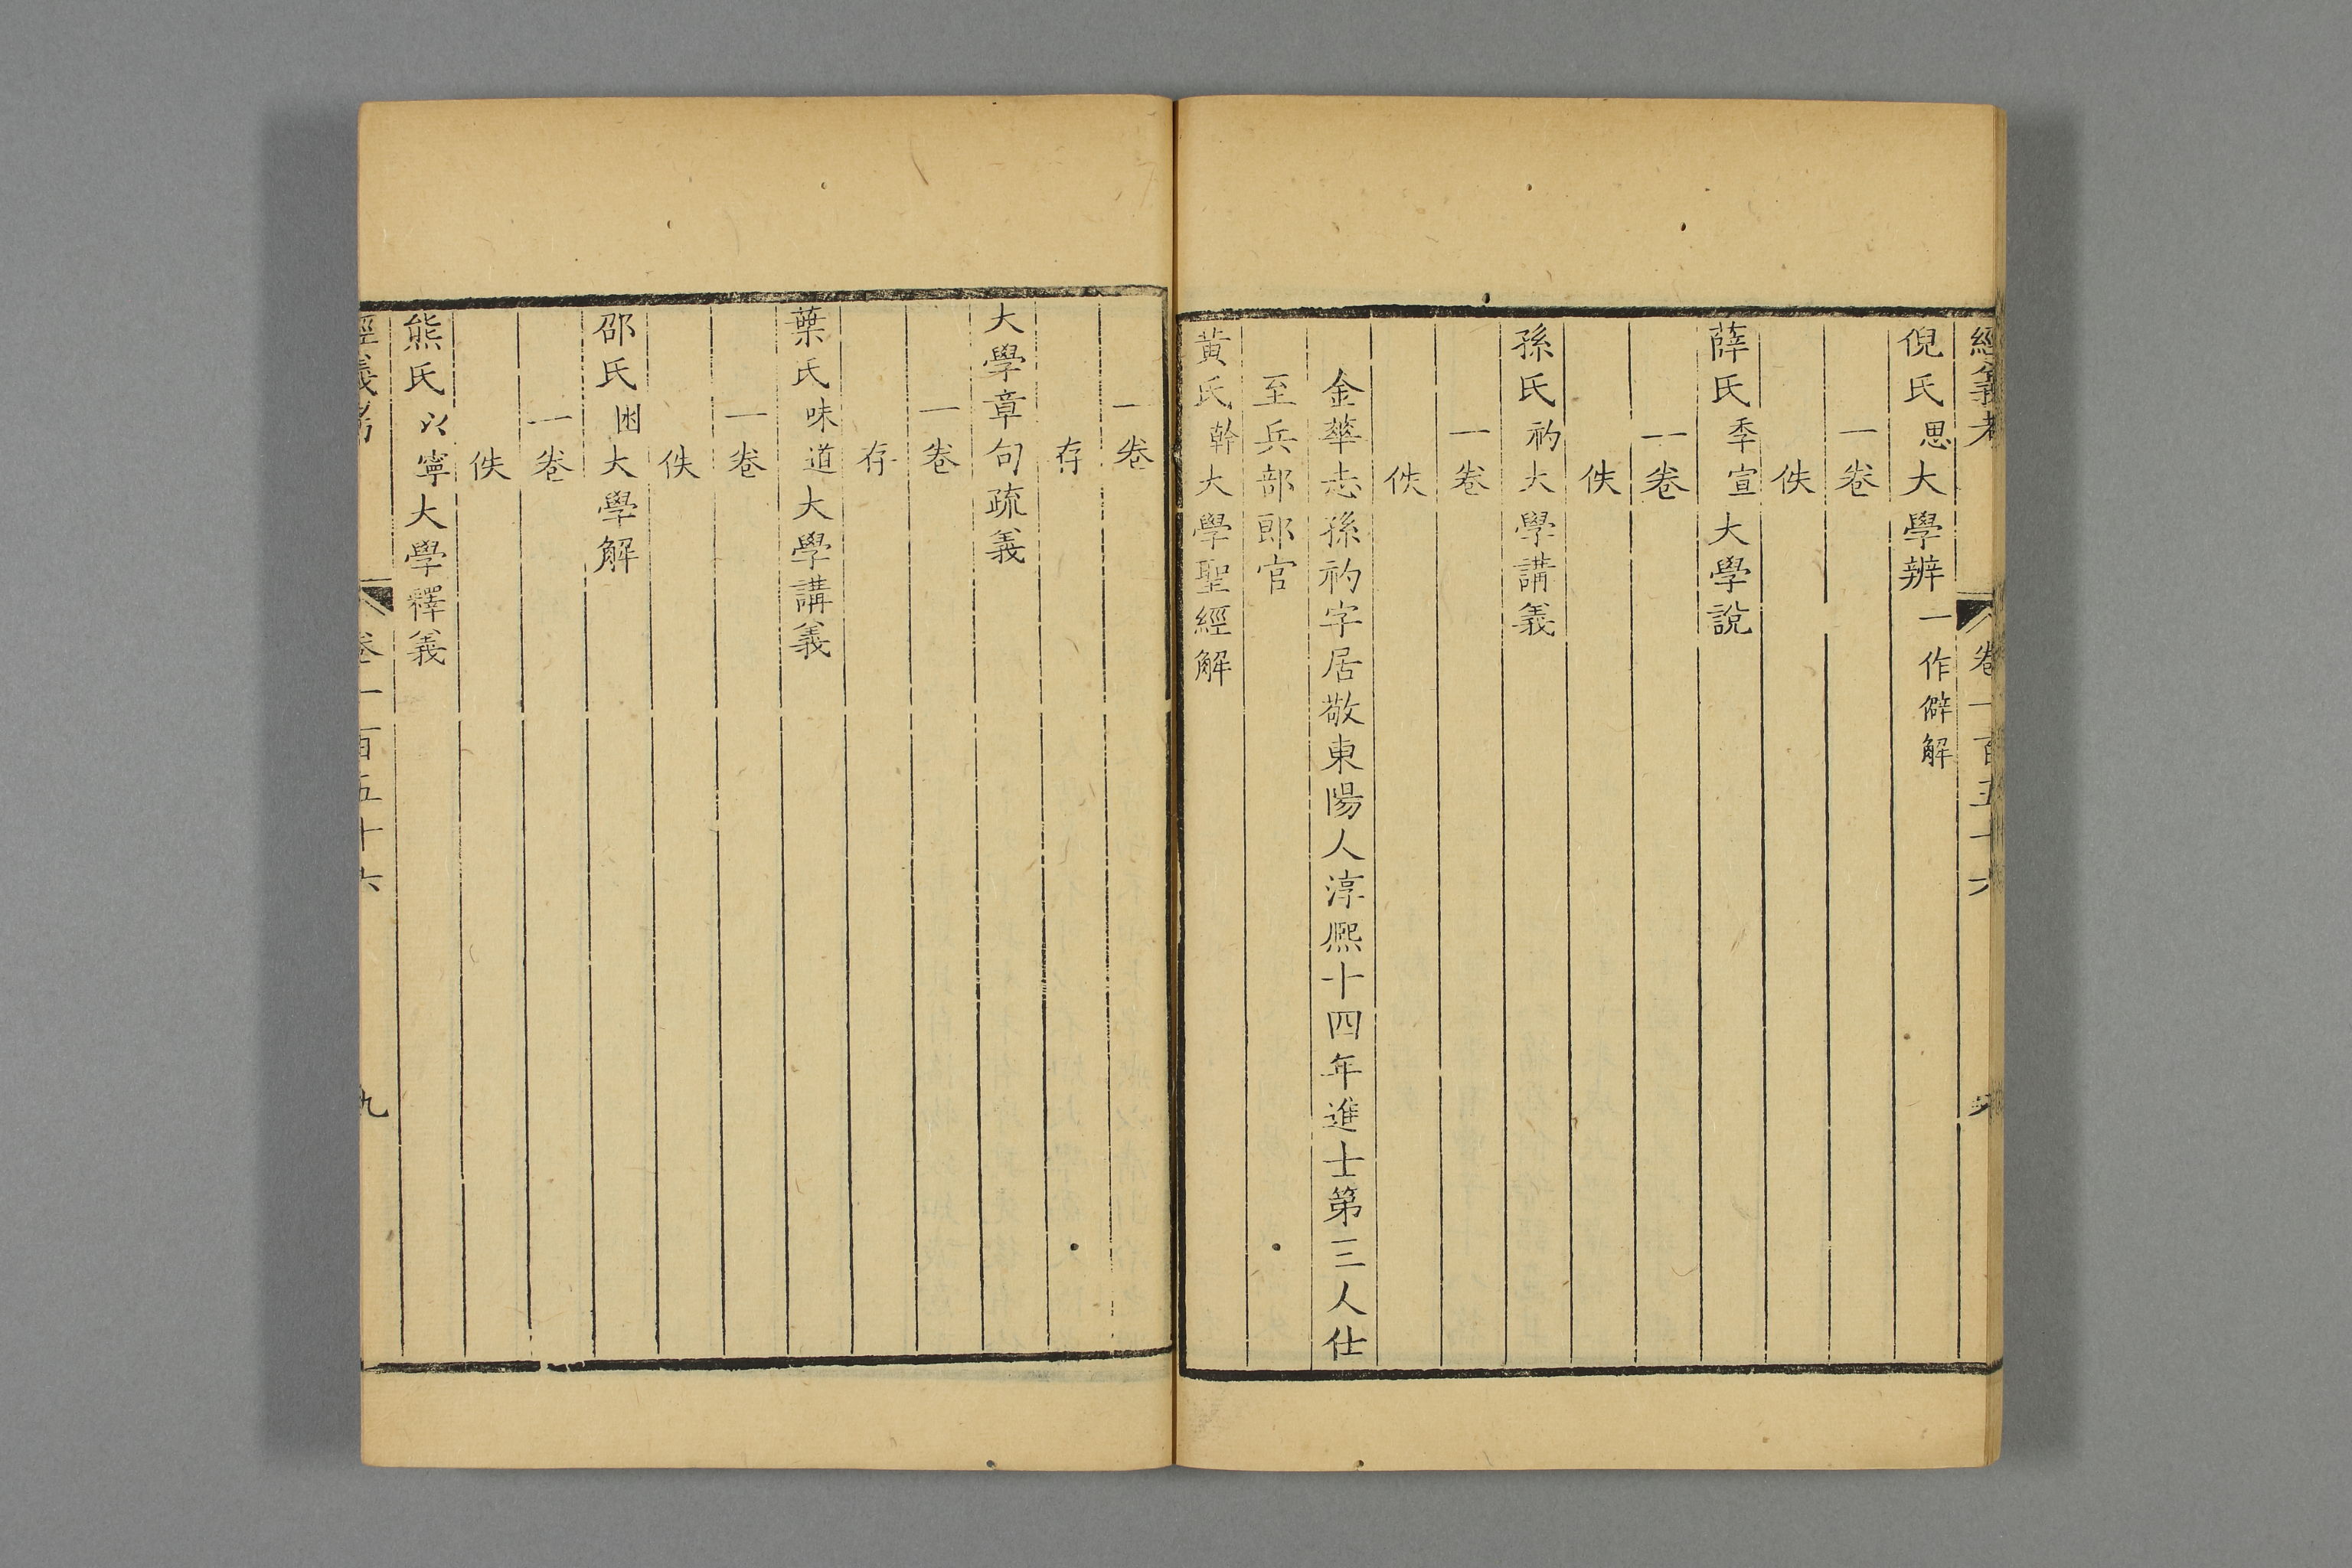 經義考 卷一百五十六 九
倪氏思大學辨一作僻解
一卷
佚
薛氏季宣大學說
一卷
佚
孫氏礿大學講義
一卷
佚
金華志孫礿字居敬東陽人淳熈十四年進士第三人仕
至兵部郎官
黃氏幹大學聖經解
一卷
存
大學章句疏義
一卷
存
葉氏味道大學講義
一卷
佚
邵氏囦大學解
一卷
佚
熊氏以寧大學釋義
經義考 卷一百五十六 九